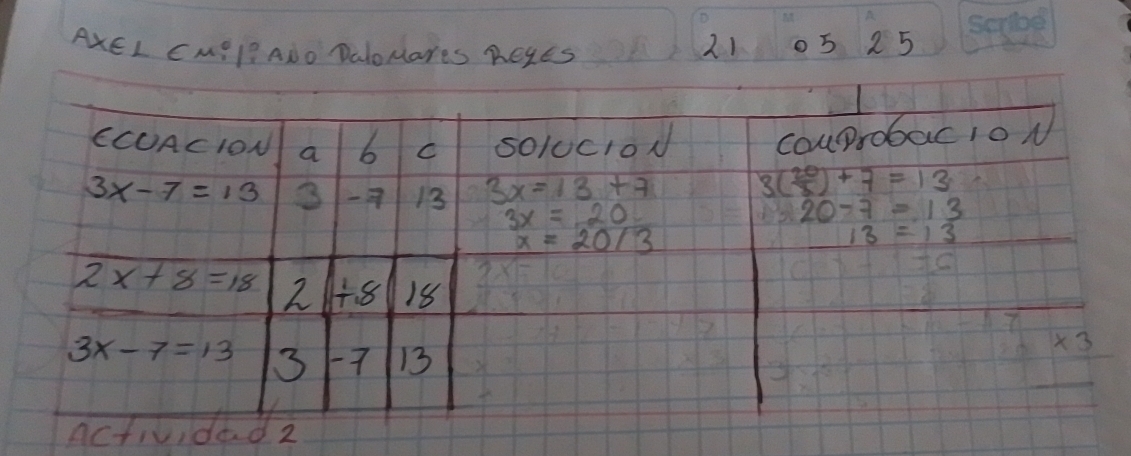 D M A
Scribe
AXEL EMiliANO Palomares Reyes 21 05 25
ECUACION a b c SOlUCION COMProbacION
3x-7=13 3 -7 13 3x=13+7 3(20/3)+7=13
3x = 20 20-7=13
x = 20/3 13=13
2x+8=18 2 +8 18
3x-7=13 3 -7 13
x3
Actividad 2